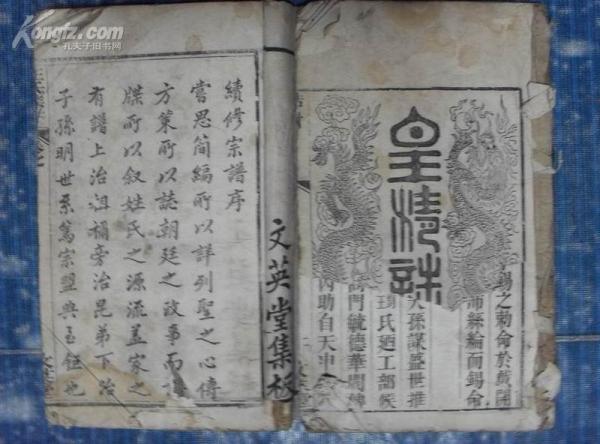 Kongfz.com
孔夫子旧书网
皇清誥
錫之勅命於戲
沛絲綸而錫命
人孫謀盛世推
氏廼工部候
門毓德華閥
內助自天申
文英堂集梓
續修宗譜序
嘗思簡編所以詳列聖之心傳
方策所以誌朝廷之政事而譜
牒所以叙姓氏之源流盖家之
有譜上治祖禰旁治昆弟下治
子孫明世系篤宗盟典至鉅也